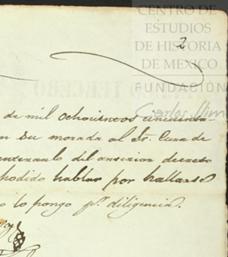 CENTRO DE
ESTUDIOS
DE HISTORIA
DE MEXICO
FUNDACIÓN
Carlos Slim
2
de mil ochocientos
en su morada al Sr. Cura de
del anterior decreto
podido hablar por hallarse
lo pongo pr. diligencia.